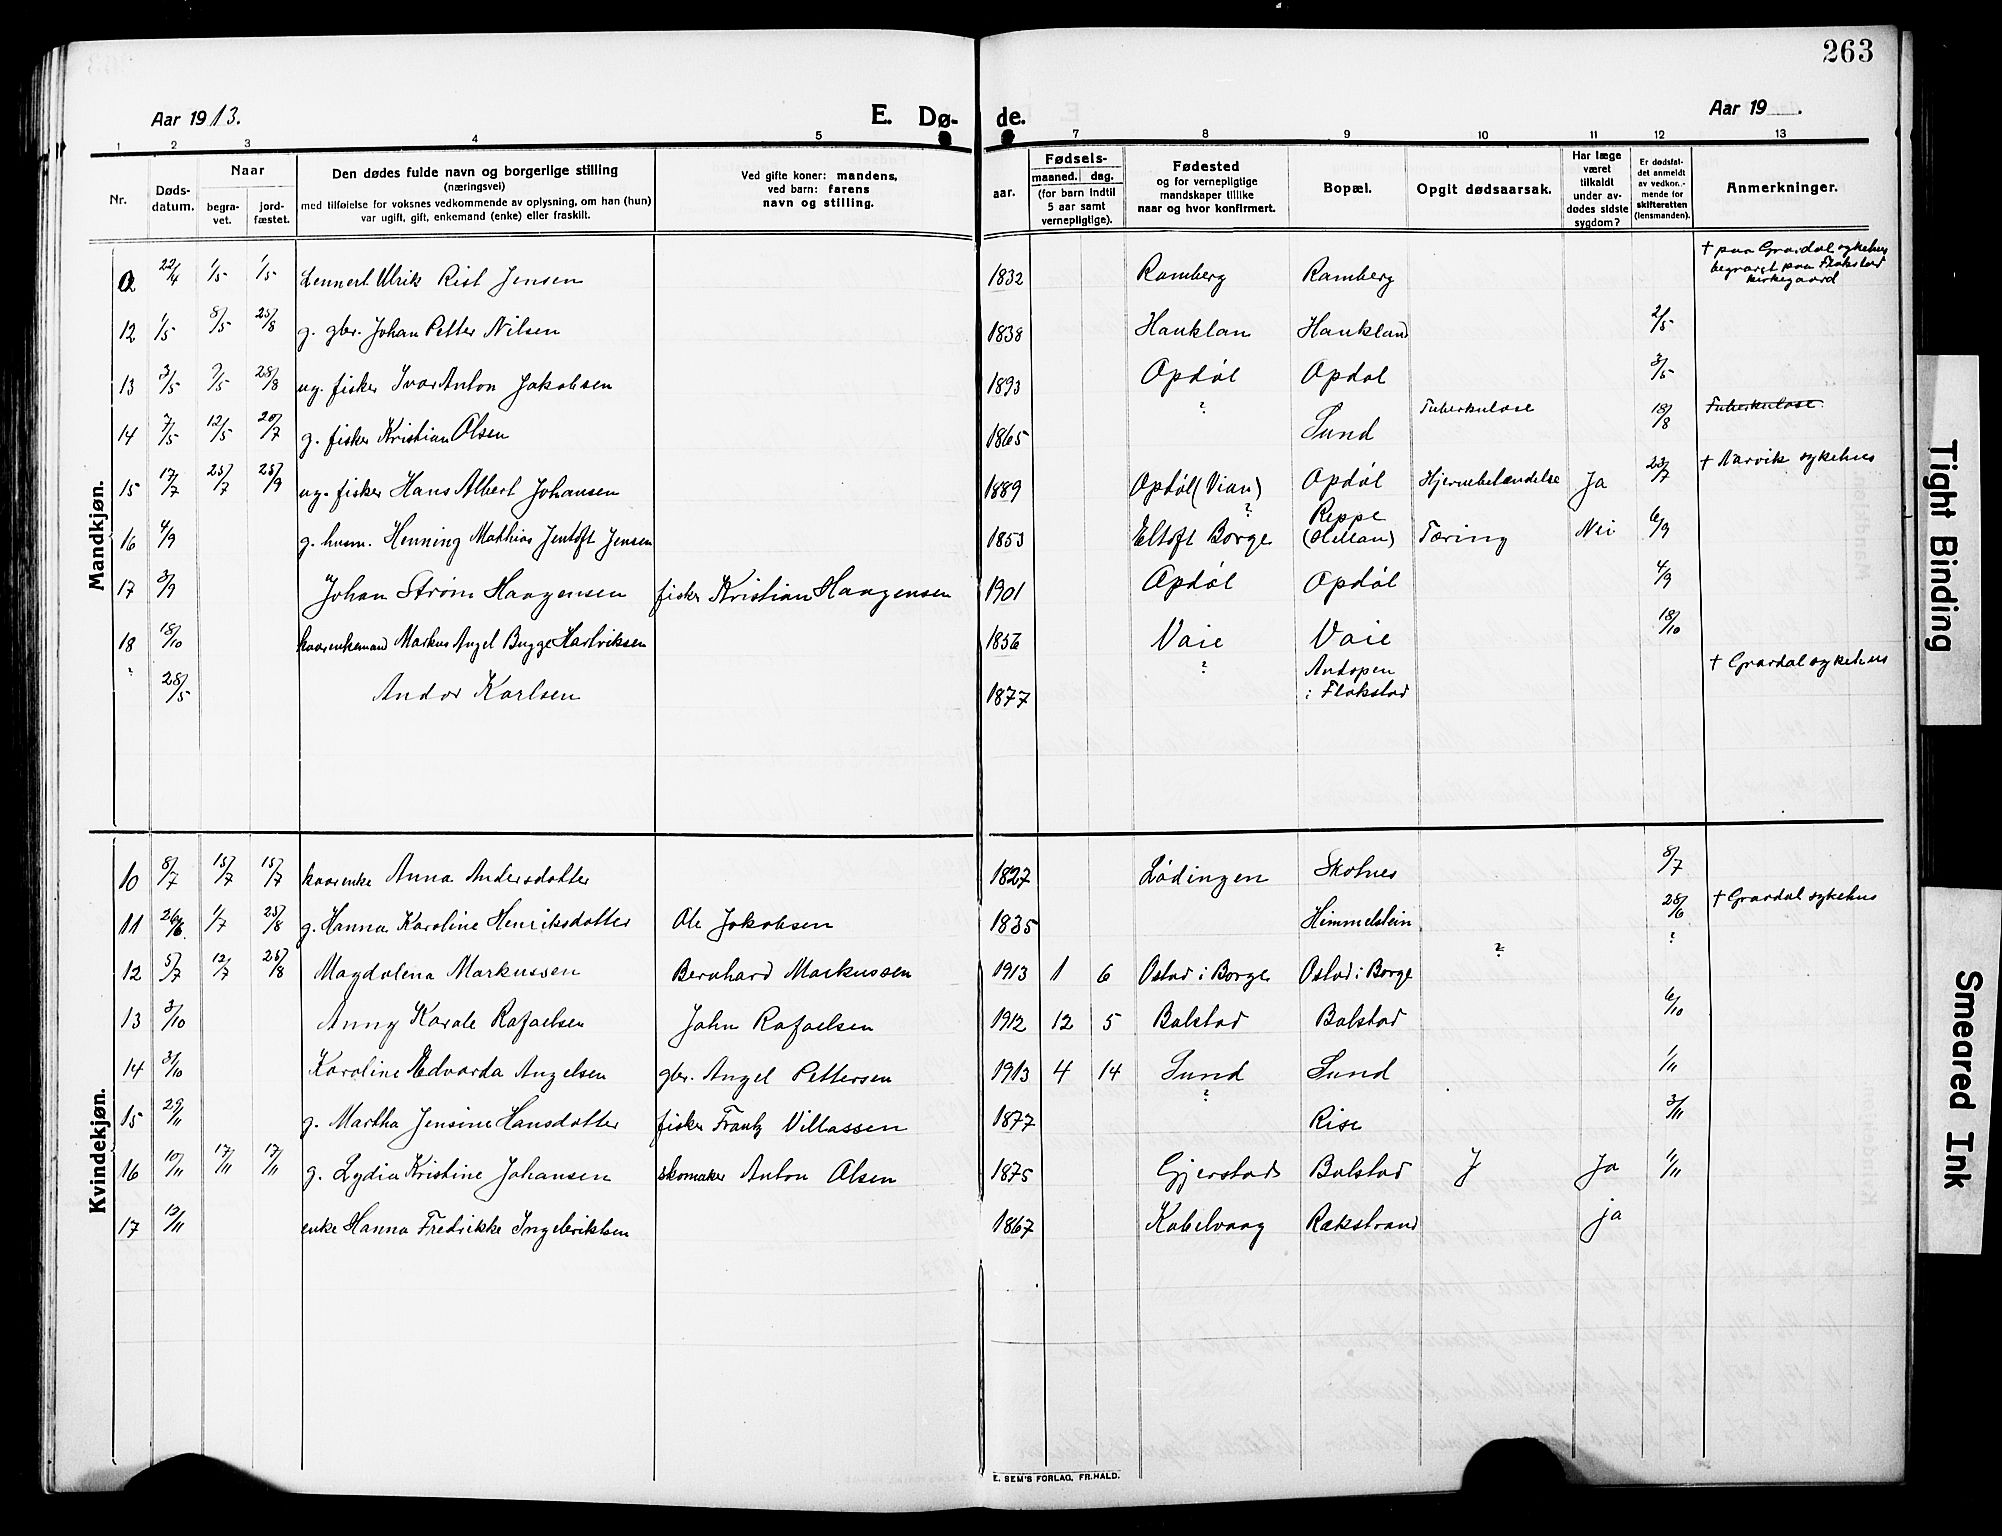 263
Aar 1913. E. Dø- de. Aar 19 .
1 2 3 4 5 7 8 9 10 11 12 13
Nr.
Døds-
datum.
Naar
begra-
vet.
jord-
fæstet.
Den dødes fulde navn og borgerlige stilling
(næringsvei)
med tilføielse for voksnes vedkommende av oplysning, om han (hun)
var ugift, gift, enkemand (enke) eller fraskilt.
Ved gifte koner: mandens,
ved barn: farens
navn og stilling.
aar.
Fødsels-
maaned. dag.
(for barn indtil
5 aar samt
vernepligtige).
Fødested
og for vernepligtige
mandskaper tillike
naar og hvor konfirmert.
Bopæl.
Opgit dødsaarsak.
Har læge
været
tilkaldt
under av-
dødes sidste
sygdom?
Er dødsfal-
det anmeldt
av vedkom-
mende for
skifteretten
(lensmanden).
Anmerkninger.
Mandkjøn.
22/4 1/5 1/5 Lennert Ulrik Rist Jensen 1832 Ramberg Ramberg † paa Gravdal sykehus
begravet paa Flakstad
kirkegaard
12 1/5 8/5 25/8 g. gbr. Johan Petter Nilsen 1838 Hauklan Haukland 2/5
13 3/5 7/5 28/8 ug. fisker Ivar Anton Jakobsen 1893 Opdøl Opdøl 3/5
14 7/5 12/5 20/7 g. fisker Kristian Olsen 1865 ? Sund Tuberkulose 18/8 Tuberkulose.
15 17/7 25/7 25/9 ug. fisker Hans Albert Johansen 1889 Opdøl (Vian) Opdøl Hjernebetændelse Ja 23/7 † Narvik sykehus
16 4/9 g. husm. Henning Mathias Jentoft Jensen 1853 ? Eltoft Borge Reppe Tæring Nei 6/9
17 3/9 Johan Strøm Haagensen fisker Kristian Haagensen 1901 Opdøl Opdøl 4/9
18 18/10 kaarenkemand Markus Angel Bugge Hartviksen 1856 Vaie Vaie 18/10
? 28/5 Andor Karlsen 1877 ? Andopen
i Flakstad † Gravdal sykehus
Kvindekjøn.
10 8/7 15/7 15/7 kaarenke Anna Andersdatter 1827 Lødingen Skotnes 8/7
11 26/6 1/7 25/8 g. Hanna Karoline Henriksdatter Ole Jakobsen 1835 Himmelstein 28/6 † Gravdal sykehus
12 5/7 12/7 25/8 Magdalena Markussen Bernhard Markussen 1913 1 6 Ostad i Borge Ostad i Borge ? ?
13 3/10 Anny Karole Rafaelsen John Rafaelsen 1912 12 5 Balstad Balstad 6/10
14 31/10 Karoline Edvarda Angelsen gbr. Angel Pettersen 1913 4 14 Sund Sund 1/11
15 29/11 g. Martha Jensine Hansdatter fisker Frantz Villassen 1877 ? Rise 3/11
16 10/11 17/11 17/11 g. Lydia Kristine Johansen skomaker Anton Olsen 1875 Gjerstad Balstad Ja 11/11
17 12/11 enke Hanna Fredrikke Ingebriktsen 1867 Kabelvaag Rækstrand ja
E. SEM'S FORLAG, FR.HALD.
Tight Binding
Smeared Ink